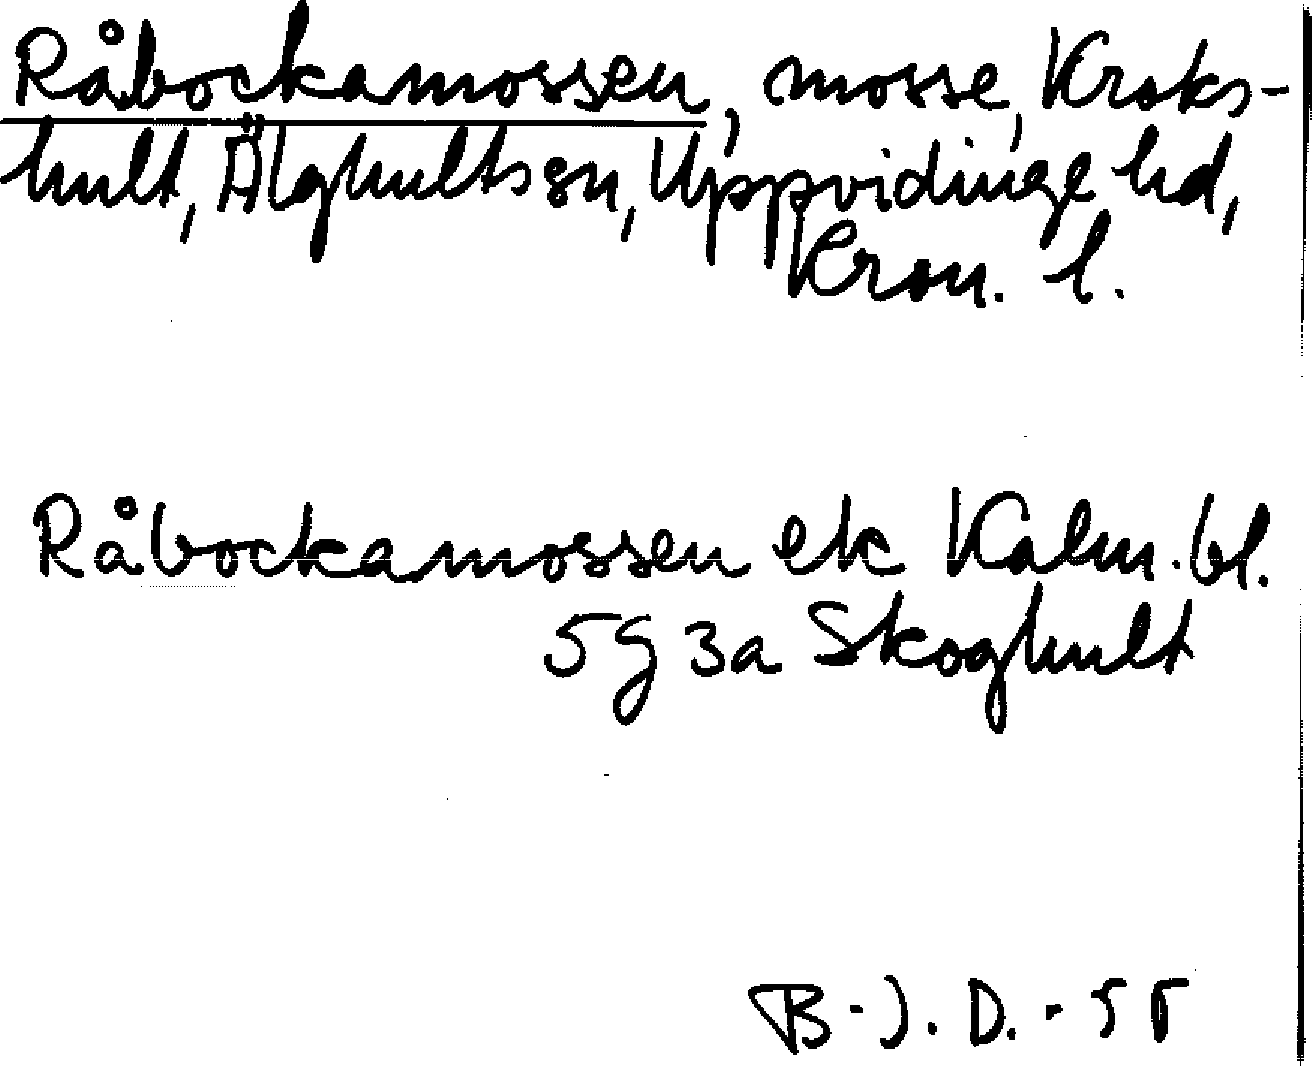 Råbockamossen, mosse, Kroks-
hult, Älghults sn, Uppvidinge hd,
Kron. l.
Råbockamossen ek Kalm. bl.
5g 3a Skoghult
B-J. D. - 55